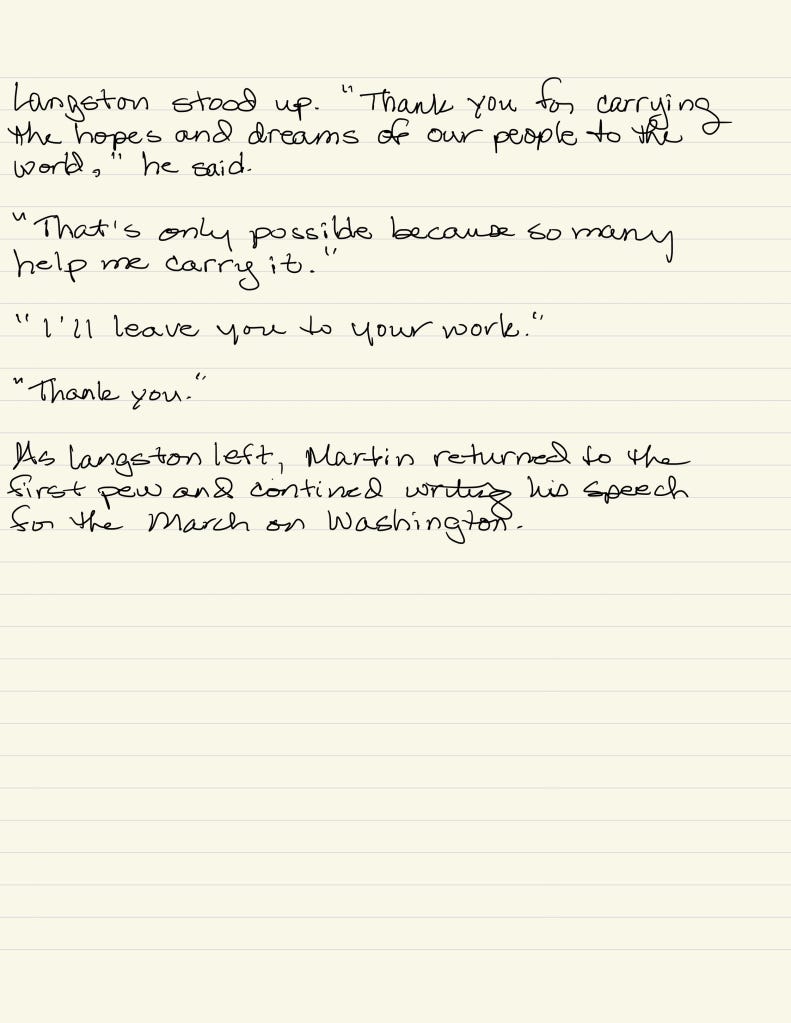 Langston stood up. "Thank you for carrying
the hopes and dreams of our people to the
world," he said.
"That's only possible because so many
help me carry it."
"I'll leave you to your work."
"Thank you."
As Langston left, Martin returned to the
first pew and contined writing his speech
for the March on Washington.